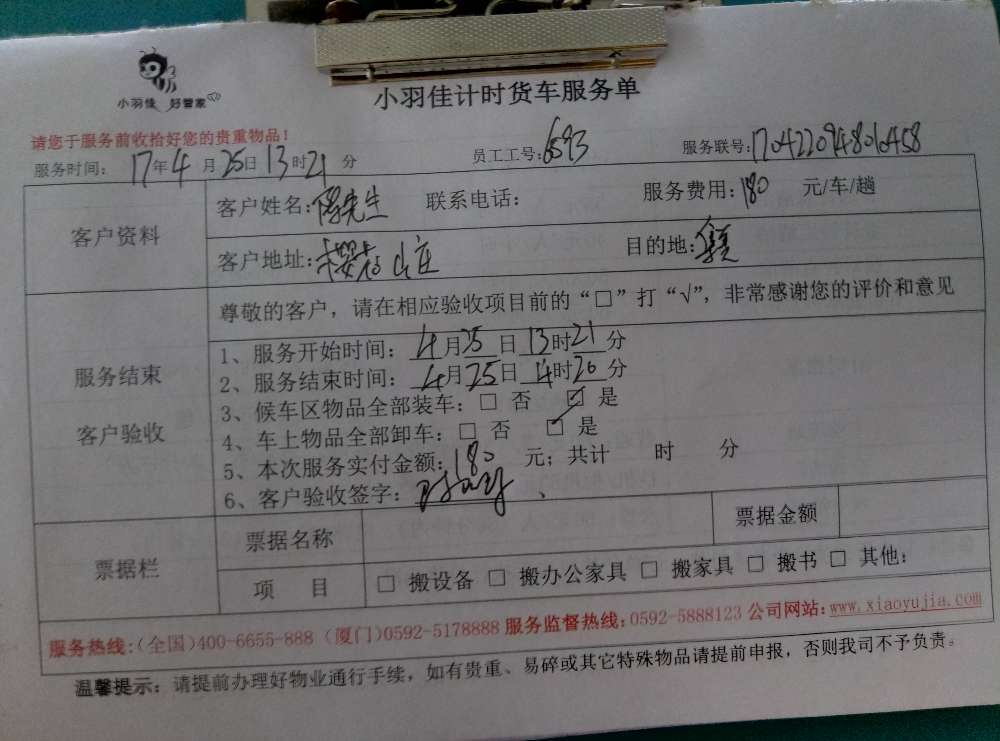 小羽佳 好管家
小羽佳计时货车服务单
请您于服务前收拾好您的贵重物品！
服务时间： 17年4月25日13时21分 员工工号：6593 服务联号：170422094806458
客户资料
客户姓名：陈先生 联系电话： 服务费用：180 元/车/趟
客户地址：樱花山庄 目的地：
尊敬的客户，请在相应验收项目前的“□”打“√”，非常感谢您的评价和意见
服务结束
客户验收
1、服务开始时间：4月25日13时21分
2、服务结束时间：4月25日14时20分
3、候车区物品全部装车：□ 否 ☑ 是
4、车上物品全部卸车：□ 否 ☑ 是
5、本次服务实付金额：180 元；共计 时 分
6、客户验收签字：
票据栏
票据名称 票据金额
项 目 □ 搬设备 □ 搬办公家具 □ 搬家具 □ 搬书 □ 其他：
服务热线：(全国)400-6655-888 (厦门)0592-5178888 服务监督热线：0592-5888123 公司网站：www.xiaoyujia.com
温馨提示：请提前办理好物业通行手续，如有贵重、易碎或其它特殊物品请提前申报，否则我司不予负责。